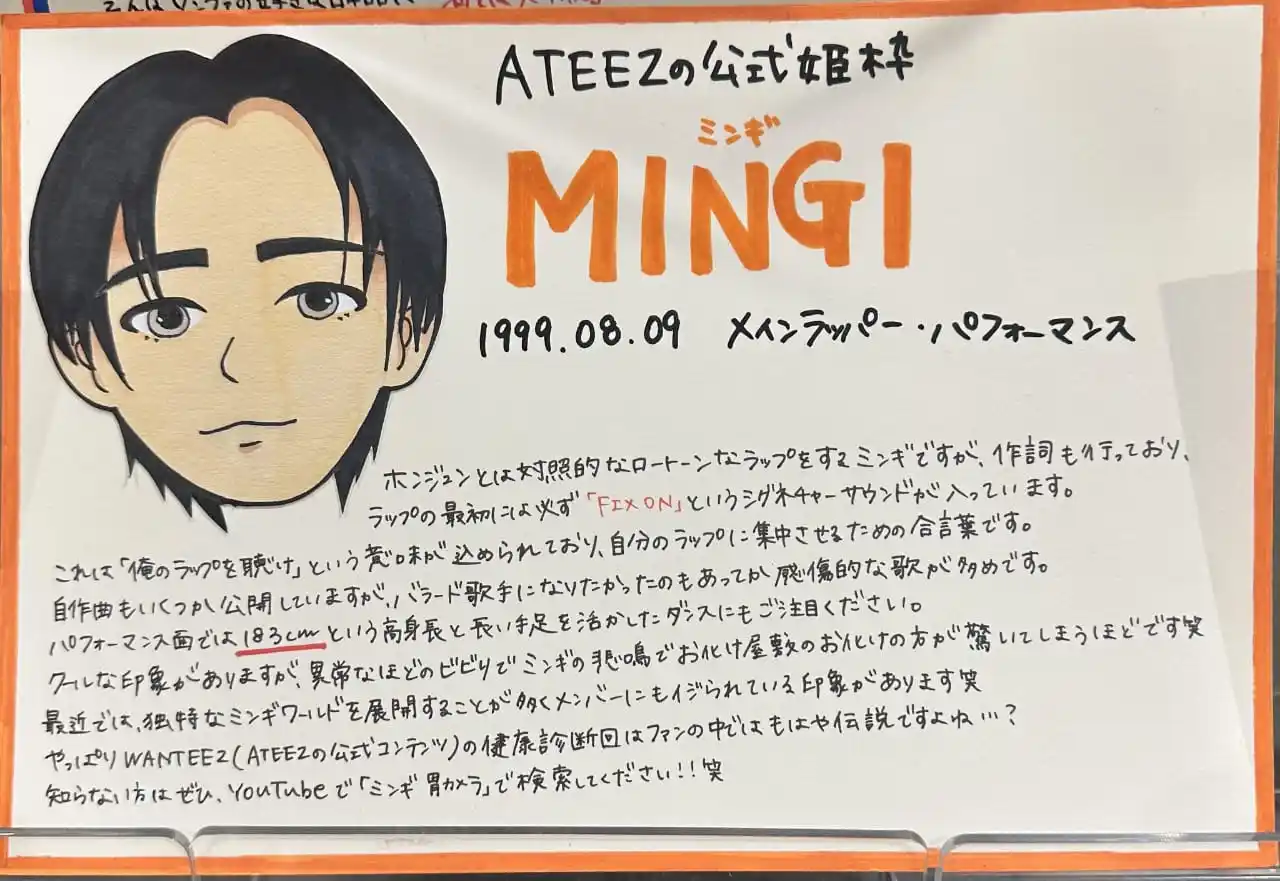 ATEEZの公式姫枠
ミンギ
MINGI
1999.08.09 メインラッパー・パフォーマンス
ホンジュンとは対照的なロートーンなラップをするミンギですが、作詞も行っており、
ラップの最初には必ず「FIX ON」というシグネチャーサウンドが入っています。
これは「俺のラップを聴け」という意味が込められており、自分のラップに集中させるための合言葉です。
自作曲もいくつか公開していますが、バラード歌手になりたかったのもあってか感傷的な歌が多めです。
パフォーマンス面では183cmという高身長と長い手足を活かしたダンスにもご注目ください。
クールな印象がありますが、異常なほどのビビリでミンギの悲鳴でお化け屋敷のお化けの方が驚いてしまうほどです笑
最近では、独特なミンギワールドを展開することが多くメンバーにもイジられている印象があります笑
やっぱりWANTEEZ(ATEEZの公式コンテンツ)の健康診断回はファンの中ではもはや伝説ですよね…?
知らない方はぜひ、YouTubeで「ミンギ 胃カメラ」で検索してください!!笑